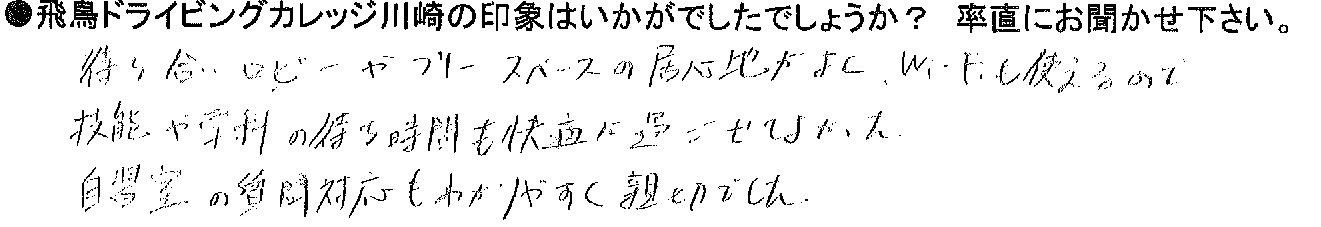 ●飛鳥ドライビングカレッジ川崎の印象はいかがでしたでしょうか？ 率直にお聞かせ下さい。
待ち合いロビーやフリースペースの居心地がよく、Wi-Fiも使えるので
技能や学科の待ち時間も快適に過ごせてよかった。
自習室の質問対応もわかりやすく親切でした。